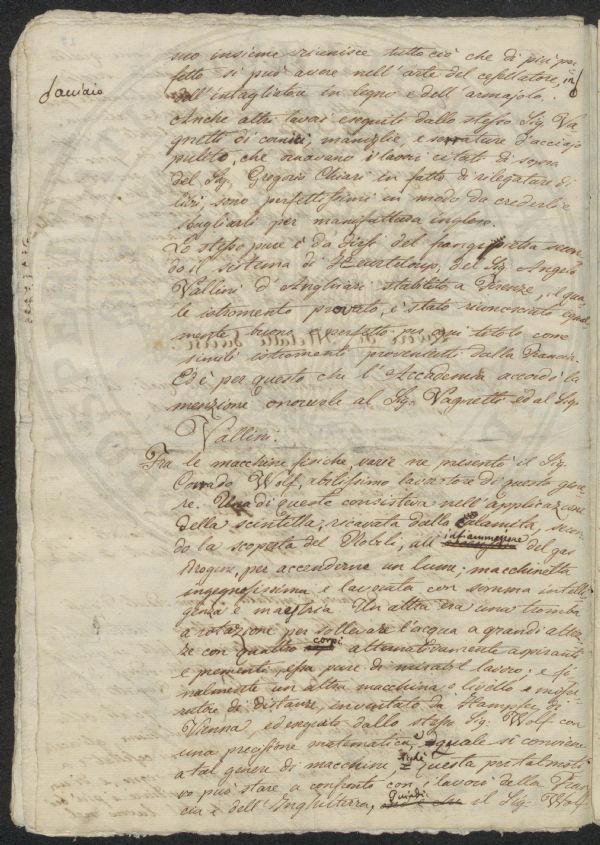 mo insieme riunisce tutto ciò che di più per
fetto si può avere nell'arte del cesellatore, in
d'acciaio
dell'intagliatore in legno e dell'armajolo.
Anche altri lavori eseguiti dallo stesso Sig. Va
gnetti di cornici, maniglie, e serrature d'acciajo
pulito, che i lavori citati di sopra
del Sig. Gregorio Chiari in fatto di rilegature di
libri, sono perfettissimi in modo da crederli e
sbagliarli per manifattura inglese.
Lo stesso pure è da dirsi del frangipietra secon
do il sistema di Heurteloup, del Sig. Angelo
Vallini d'Anghiari stabilito a Firenze, il qua
le istromento provato, è stato riconosciuto egual
mente buono e perfetto per ogni titolo come
simili istromenti provenienti dalla Francia.
Ed è per questo che l'Accademia accordò la
menzione onorevole al Sig. Vagnetti ed al Sig.
Vallini.
Fra le macchine fisiche, varie ne presentò il Sig.
Corrado Wolf, abilissimo lavoratore di questo gene
re. Una di queste consisteva nell'applicazione
della scintilla, ricavata dalla Calamita, secon
do la scoperta del Nobili, all' infiammazione del gas
idrogene, per accenderne un lume; macchinetta
ingegnosissima e lavorata con somma intelli
genza e maestria. Un altra era una tromba
a rotazione per sollevare l'acqua a grandi altez
ze con quattro corpi alternativamente aspiranti
e prementi, essa pure di mirabil lavoro; e fi
nalmente un altra macchina a livello e misu
ratore di distanze, inventata da Stampfer di
Vienna, ed eseguita dallo stesso Sig. Wolf con
una precisione matematica, quale si conviene
a tal genere di macchine. Egli questa pertal moti
vo può stare a confronto con i lavori della Fran
cia e dell'Inghilterra, quindi il Sig. Wolf